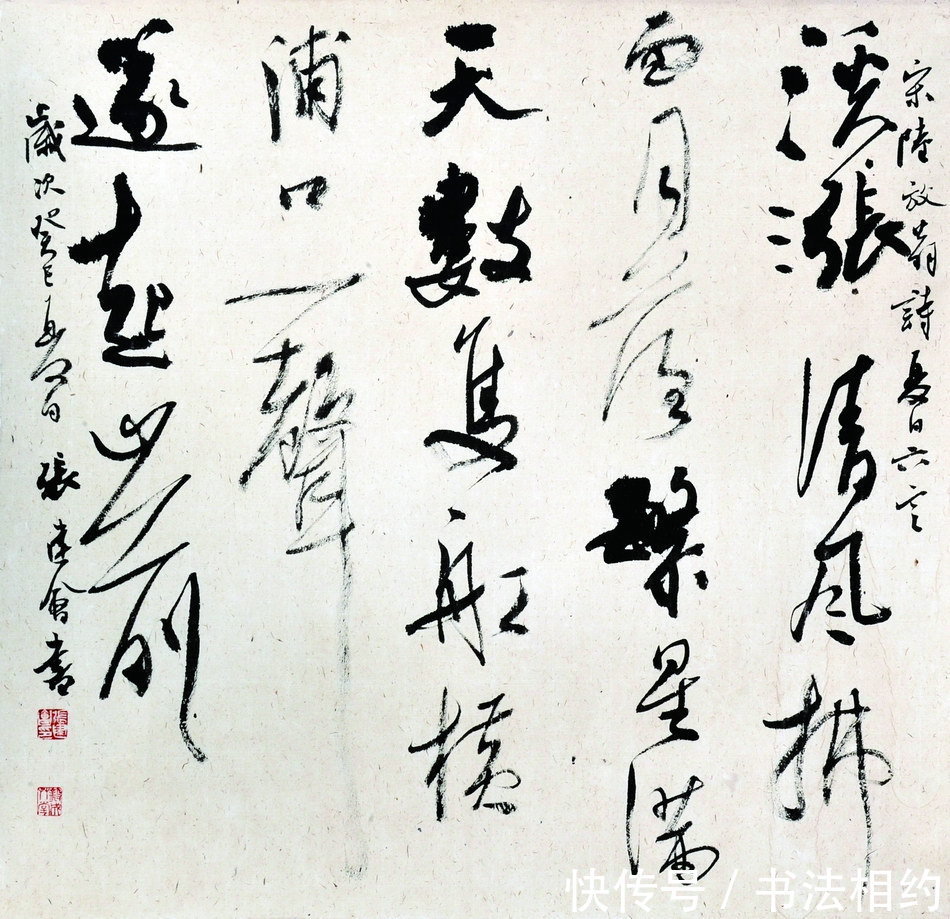 宋陸放翁詩夏日六言
溪漲清風拂
面月落繁星滿
天數隻船橫
浦口一聲
篴起山前
歲次癸巳 日 張建會書
快传号 / 书法相约